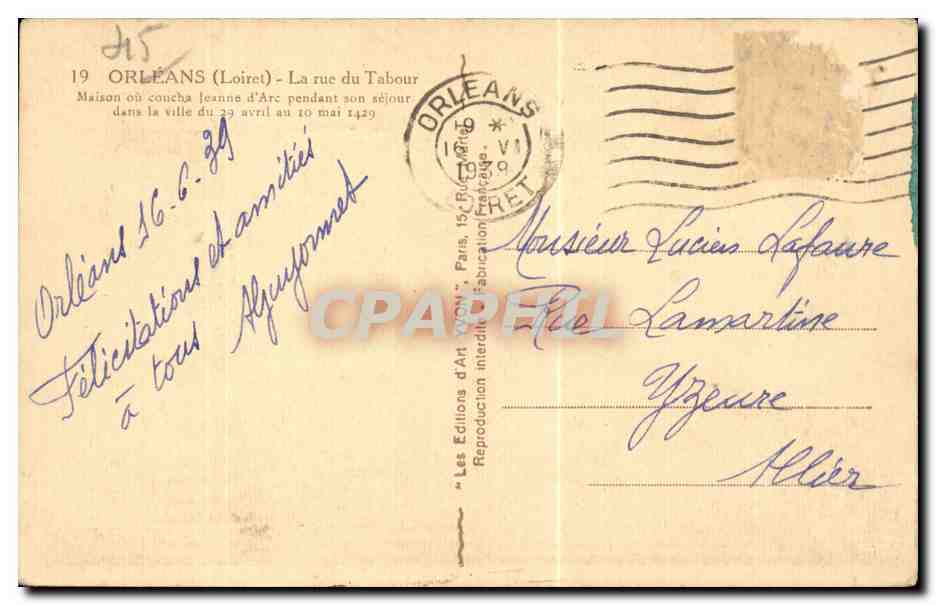 45
19 ORLÉANS (Loiret) - La rue du Tabour
Maison où coucha Jeanne d'Arc pendant son séjour
dans la ville du 29 avril au 10 mai 1429
Orléans 16-6-39
Félicitations et amitiés
à tous
"Les Editions d'Art YVON", Paris, 15, Rue Martel
Reproduction interdite - Fabrication Française.
ORLEANS
19 *
16 VI
1939
LOIRET
Monsieur Lucien Lafaure
Rue Lamartine
Yzeure
Allier
CPAPHIL